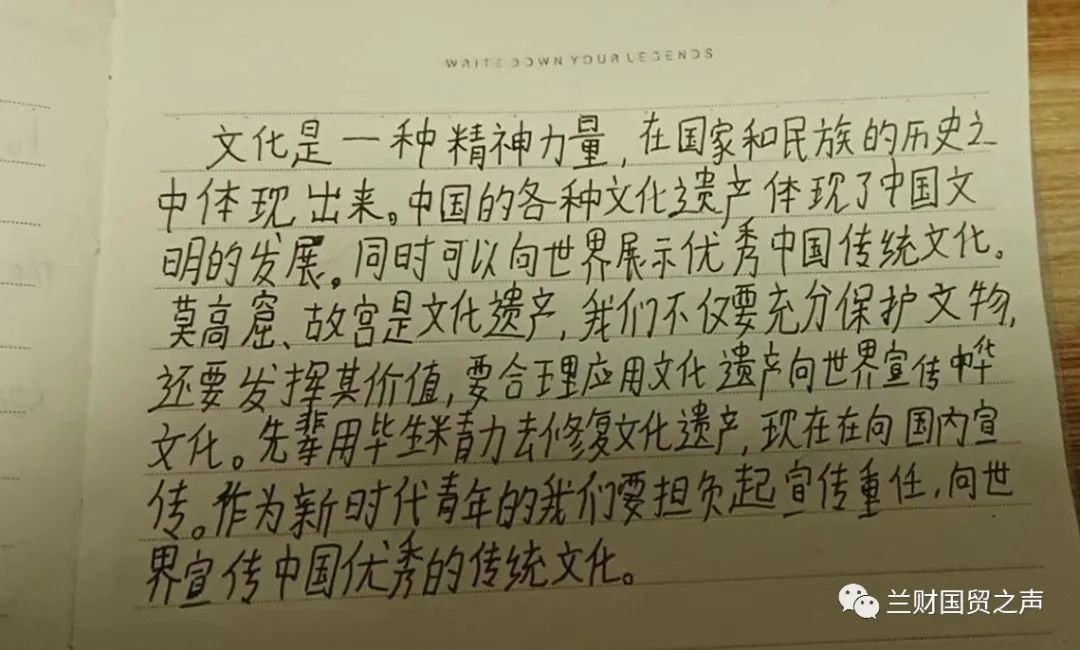 WRITE DOWN YOUR LEGENDS
文化是一种精神力量,在国家和民族的历史之
中体现出来。中国的各种文化遗产体现了中国文
明的发展。同时可以向世界展示优秀中国传统文化。
莫高窟、故宫是文化遗产,我们不仅要充分保护文物,
还要发挥其价值,要合理应用文化遗产向世界宣传中华
文化。先辈用毕生精力去修复文化遗产,现在在向国内宣
传。作为新时代青年的我们要担负起宣传重任,向世
界宣传中国优秀的传统文化。
兰财国贸之声